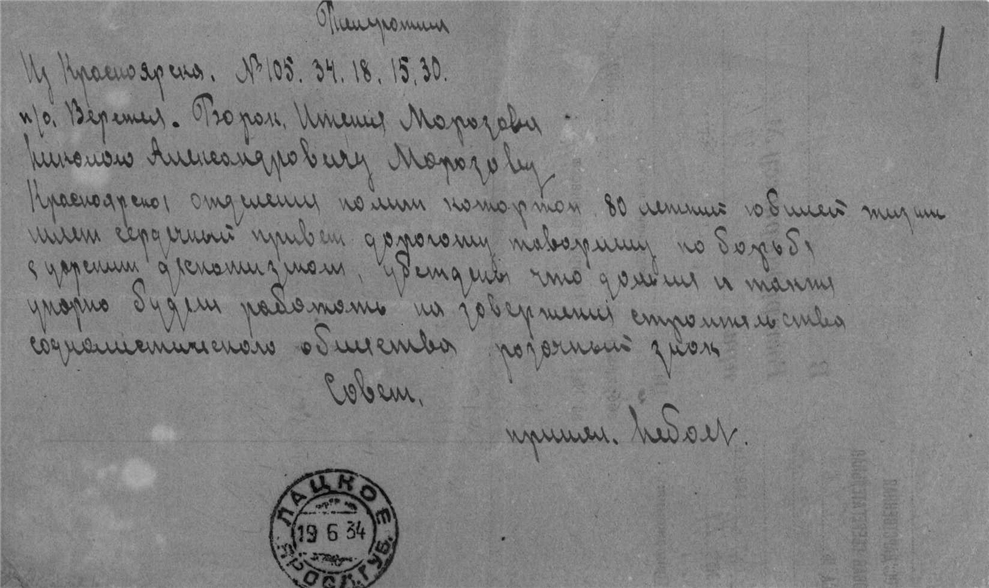 Телеграмма
1
Из Красноярска. № 105. 34. 18. 15. 30.
п/о. Веретея. Борок. Имения Морозова
Николаю Александровичу Морозову
Красноярское отделения полит каторжан 80 летний юбилей жизни
шлет сердечный привет дорогому товарищу по борьбе
с царским деспотизмом, убеждены что дальше и также
упорно будем работать на завершения строительства
социалистического общества
знак
Совет.
принял.
ЛАЦКОЕ
19 6 34
ЯРОСЛ. ГУБ.